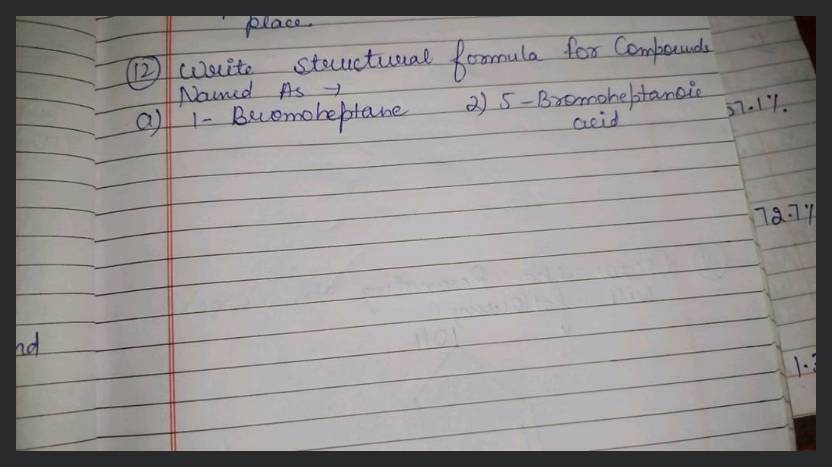 place
(12) Write structural formula for Compounds
Named As →
a) 1- Bromoheptane 2) 5-Bromoheptanoic
acid
57.1%.
72.7%
nd
1.3